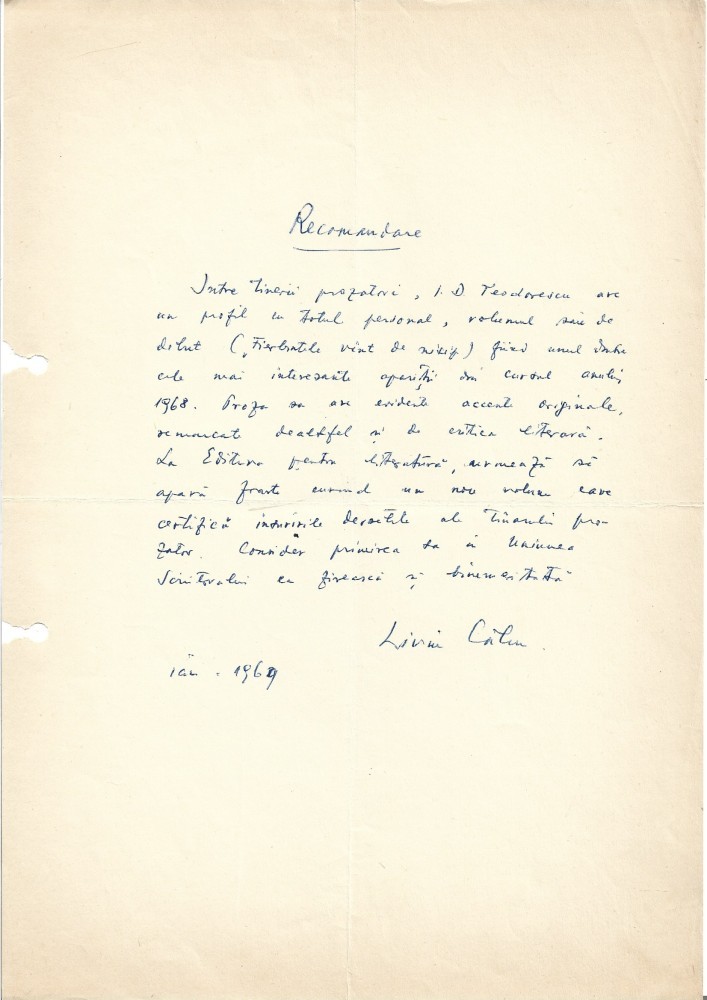 Recomandare
Între tinerii prozatori, I. D. Teodorescu are
un profil cu totul personal, volumul său de
debut („Fierbintele vînt de nisip") fiind unul dintre
cele mai interesante apariții din cursul anului
1968. Proza sa are evidente accente originale,
remarcate dealtfel și de critica literară.
La Editura pentru literatură, urmează să
apară foarte curînd un nou volum care
certifică însușirile deosebite ale tînărului pro-
zator. Consider primirea sa în Uniunea
Scriitorilor ca firească și binemeritată
Liviu Călin.
ian - 1969